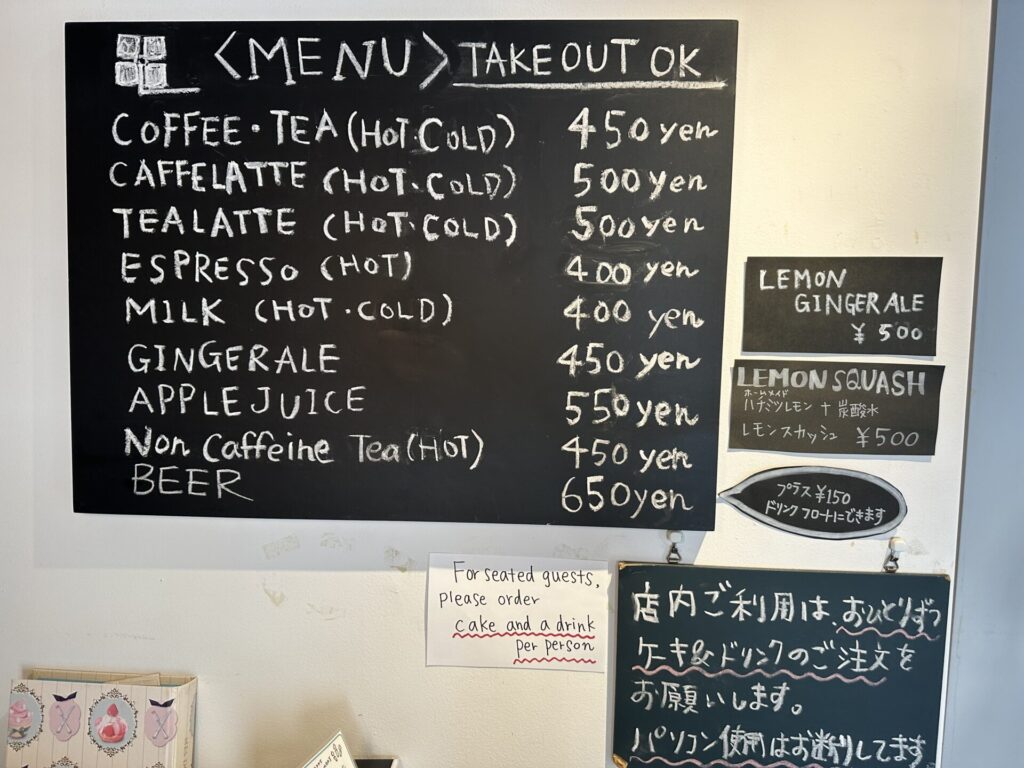 <MENU> TAKE OUT OK
COFFEE・TEA (HOT・COLD) 450 yen
CAFFELATTE (HOT・COLD) 500 yen
TEALATTE (HOT・COLD) 500 yen
ESPRESSO (HOT) 400 yen
MILK (HOT・COLD) 400 yen
GINGERALE 450 yen
APPLE JUICE 550 yen
Non Caffeine Tea (HOT) 450 yen
BEER 650 yen
LEMON
GINGERALE
¥500
LEMON SQUASH
ホームメイド
ハチミツレモン + 炭酸水
レモンスカッシュ ¥500
プラス ¥150
ドリンクフロートにできます
For seated guests,
please order
cake and a drink
per person
店内ご利用は、おひとりずつ
ケーキ&ドリンクのご注文を
お願いします。
パソコン使用はお断りしてます